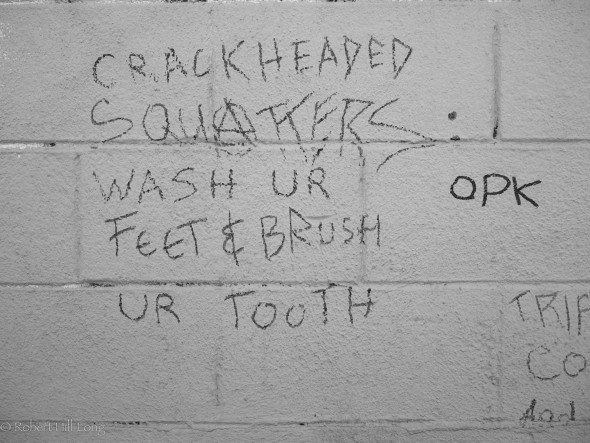 CRACKHEADED
SQUATTERS:
WASH UR
OPK
FEET & BRUSH
UR TOOTH
TRIP
CO
And
© Robert Hill Long